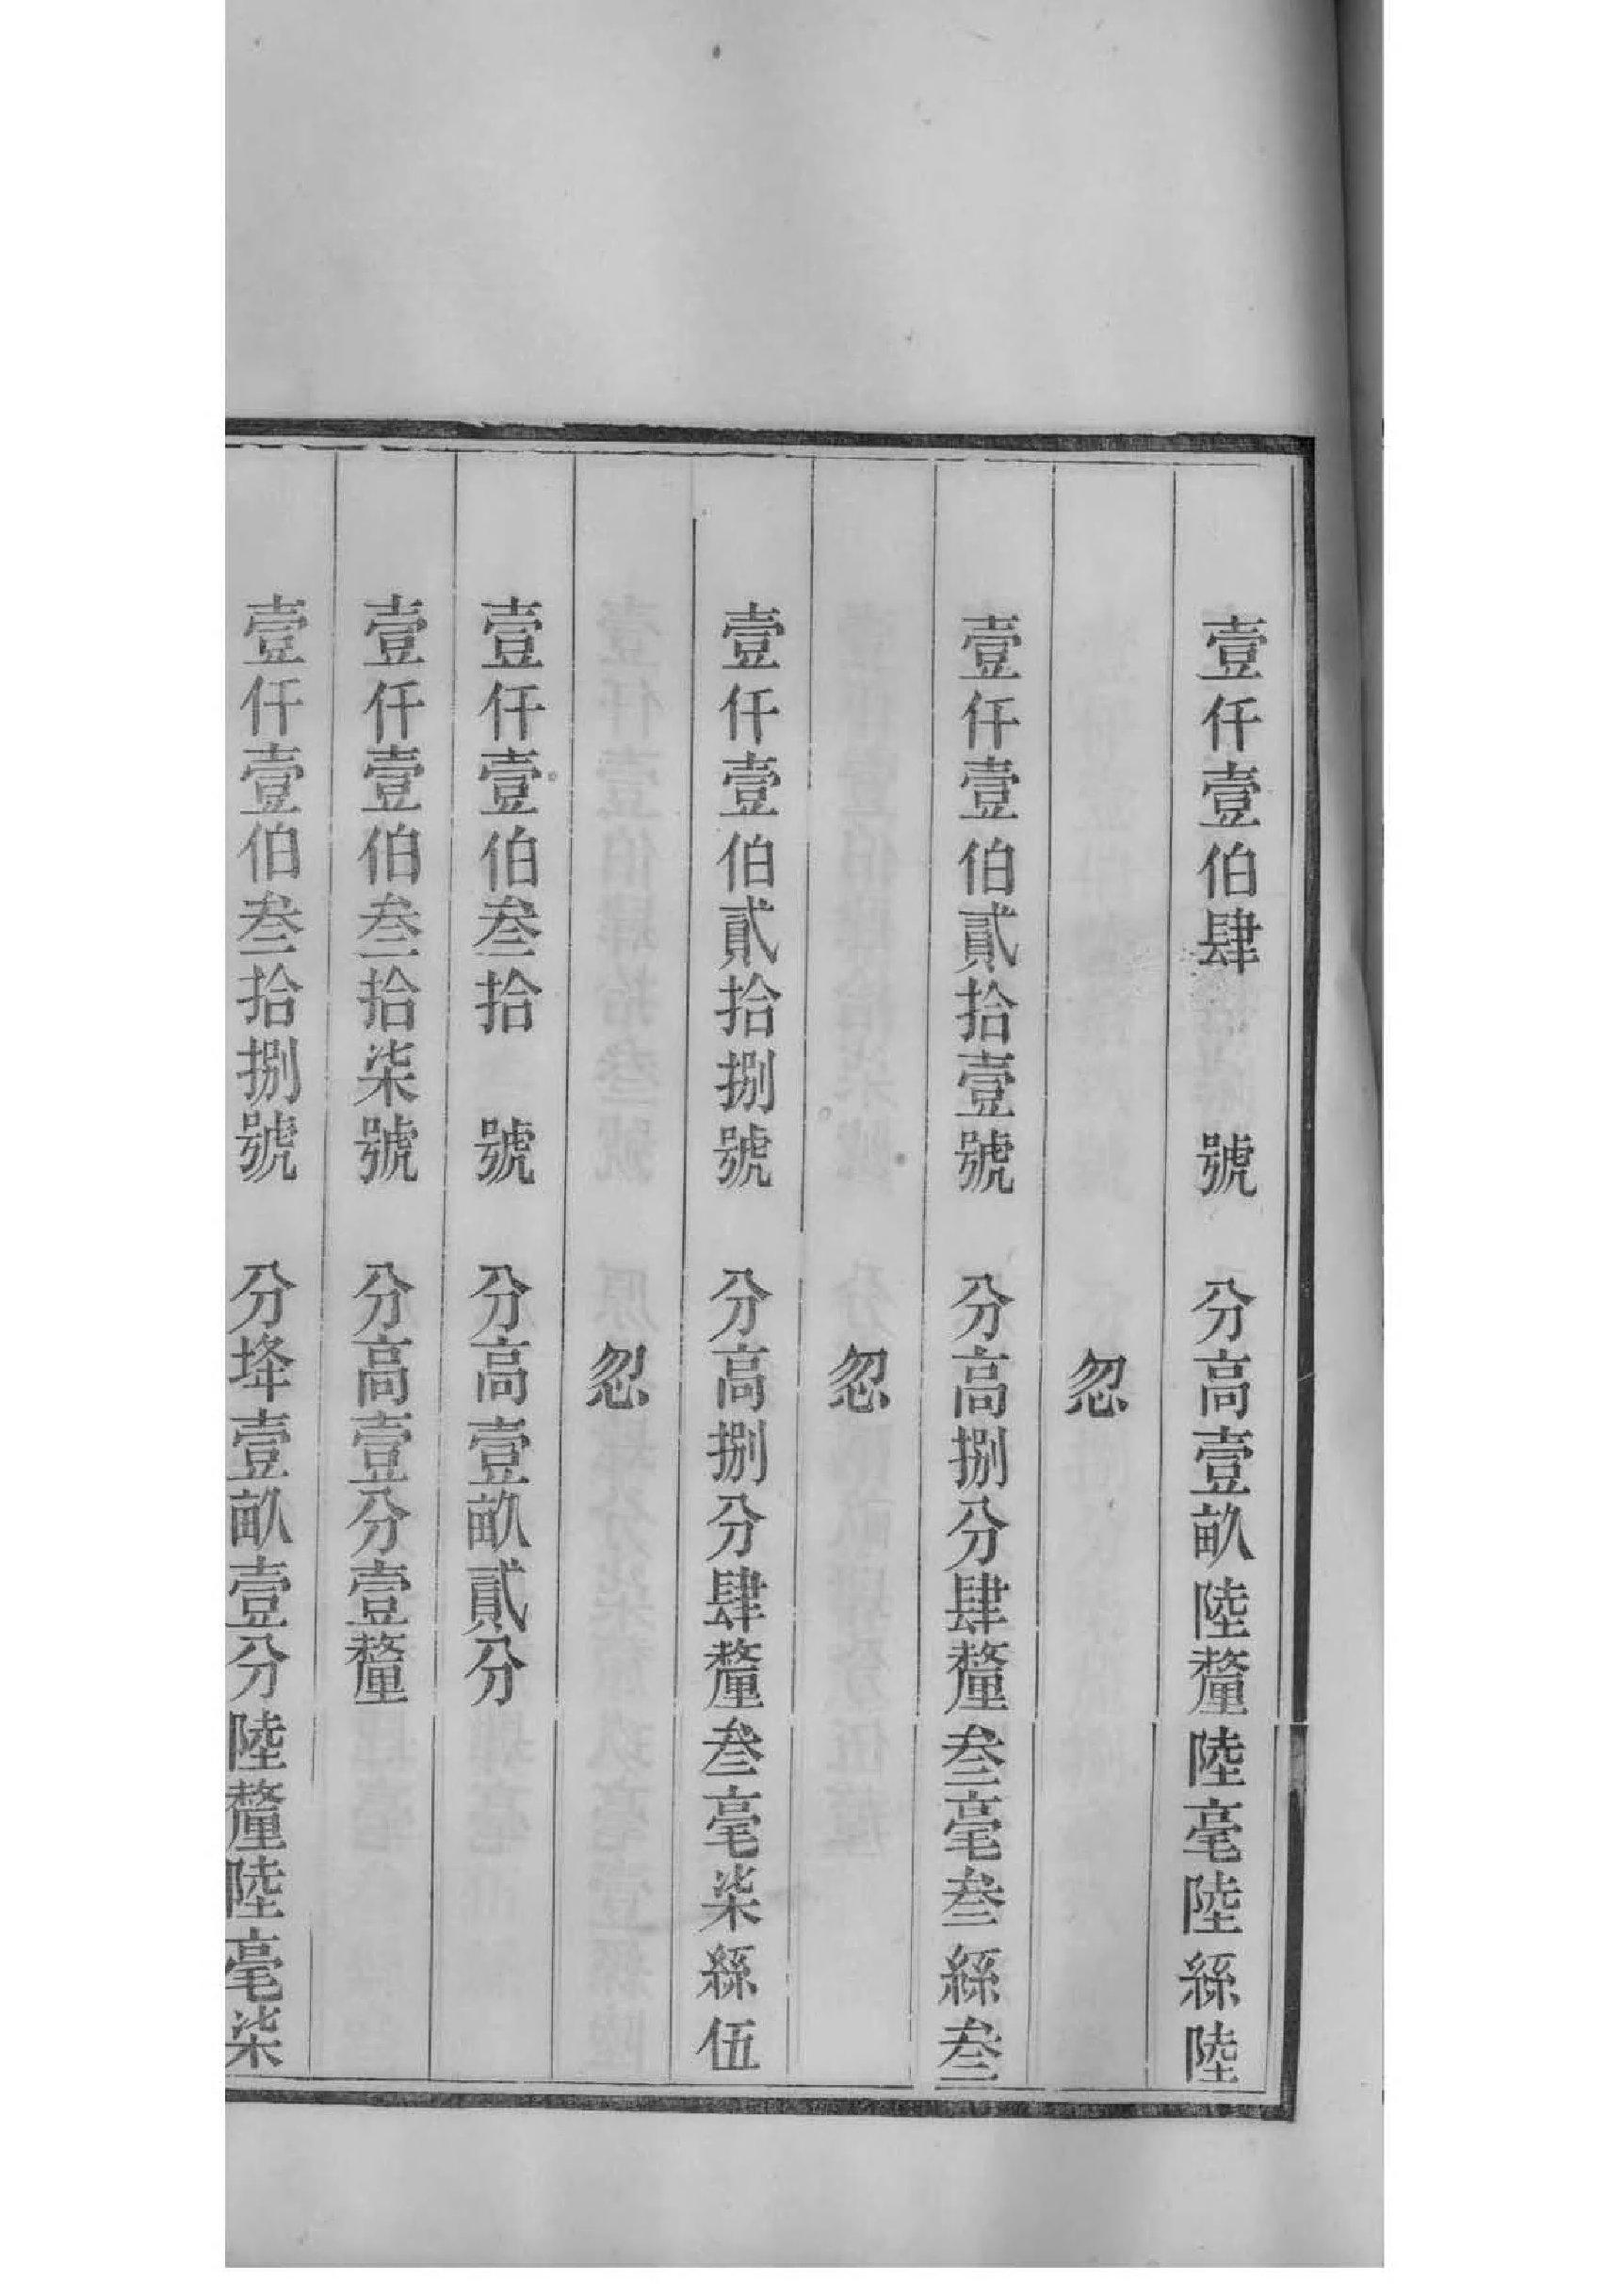 壹仟壹伯肆　號　分高壹畝陸釐陸毫陸絲陸
忽
壹仟壹伯貳拾壹號　分高捌分肆釐叁毫叁絲叁
忽
壹仟壹伯貳拾捌號　分高捌分肆釐叁毫柒絲伍
忽
壹仟壹伯叁拾　號　分高壹畝貳分
壹仟壹伯叁拾柒號　分高壹分壹釐
壹仟壹伯叁拾捌號　分埄壹畝壹分陸釐陸毫柒